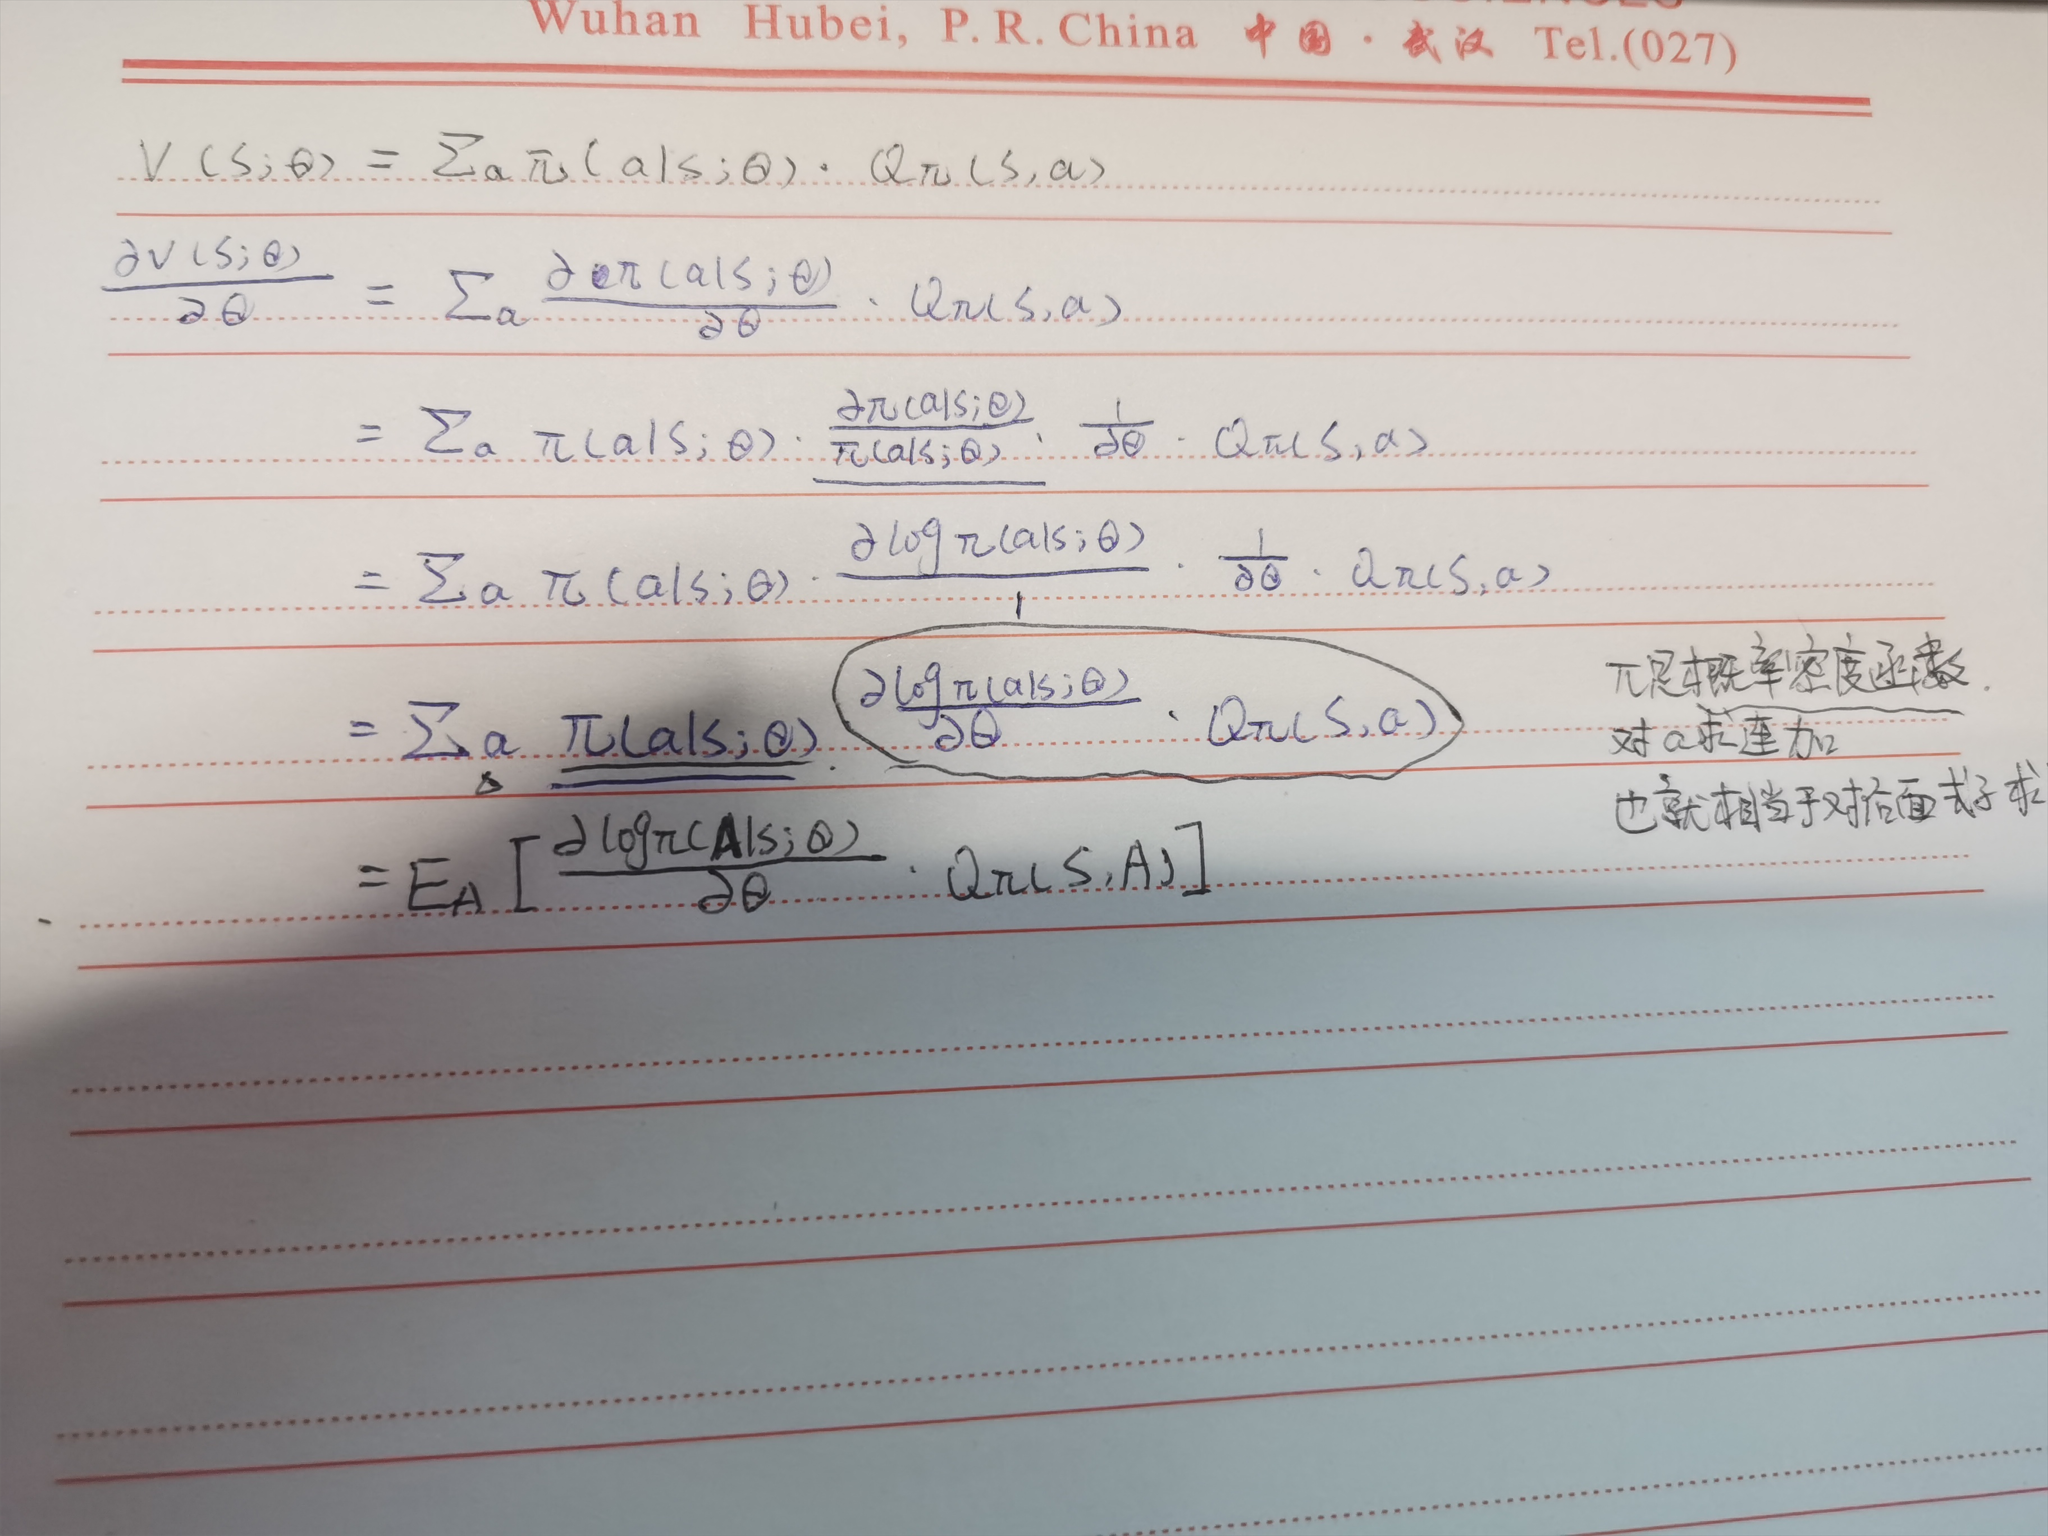 Wuhan Hubei, P. R. China 中国·武汉 Tel.(027)
V(s;θ) = Σₐ π(a|s;θ) · Qπ(s,a)
∂V(s;θ)/∂θ = Σₐ ∂π(a|s;θ)/∂θ · Qπ(s,a)
= Σₐ π(a|s;θ) · ∂π(a|s;θ)/π(a|s;θ) · 1/∂θ · Qπ(s,a)
= Σₐ π(a|s;θ) · ∂logπ(a|s;θ)/1 · 1/∂θ · Qπ(s,a)
= Σₐ π(a|s;θ) · ∂logπ(a|s;θ)/∂θ · Qπ(s,a)
π是概率密度函数.
对a求连加
也就相当于对后面式子求
= E_A [∂logπ(A|s;θ)/∂θ · Qπ(s,A)]